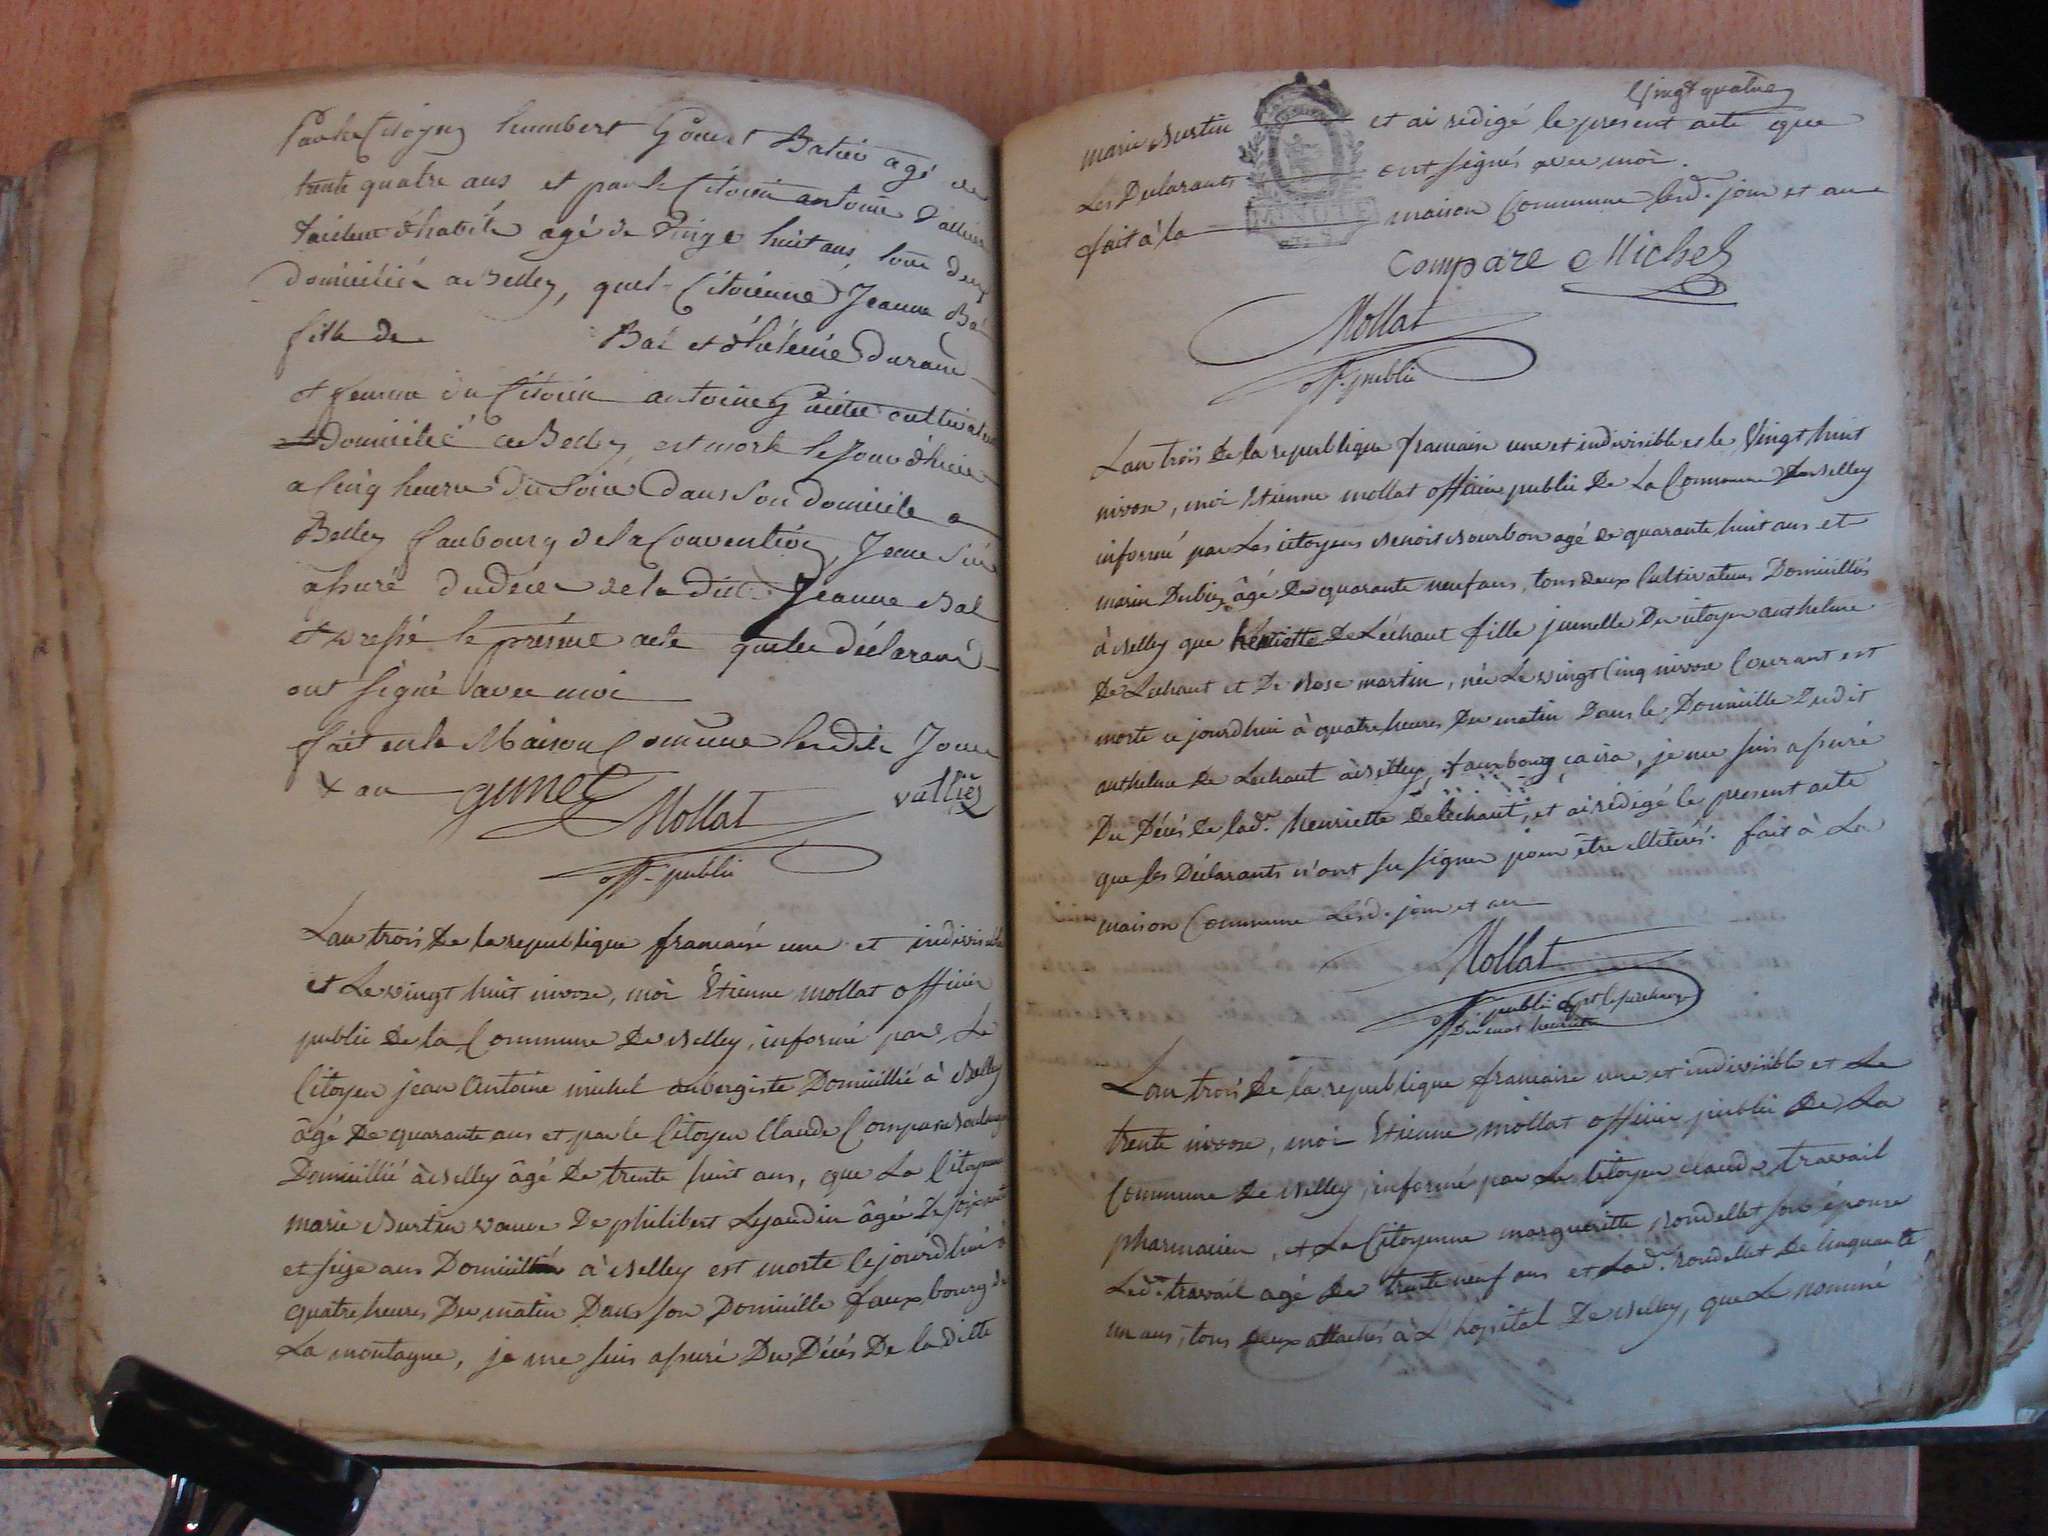 Par le Citoyen humbert Gonet Batier agé de
trente quatre ans et par le Citoien antoine Vallier
tailleur d'habits agé de Vingt huit ans, tous deux
domicilié a Belley, que la Citoienne Jeanne Bal
fille de Bal et d'hélène Durand
et femme du Citoien antoine cultivateur
domicilié a Belley, est morte le Jour d'hier
a Cinq heures du Soir dans Son domicile a
Belley faubourg de la Convention, Je me Suis
assuré du décès de la dite Jeanne Bal
et dressé le présent acte que les déclarants
ont signé avec moi
fait en la Maison Commune lesdits Jour
& an gonet Vallier
Mollat
off. public
L'an trois De la republique francaise une et indivisible
et Le vingt huit nivose, moi Etienne mollat officier
public de la Commune De Belley, informé par Le
Citoyen jean Antoine michel aubergiste Domicillié à Belley
âgé De quarante ans et par le Citoyen Claude Compare Boulanger
Domicillié à Belley âgé De trente huit ans, que La Citoyenne
marie Burtin veuve De philibert Lejaudin âgée De soixante
et seize ans Domicilliée à Belley est morte cejourdhui à
quatre heures Du matin Dans son Domicille fauxbourg de
La montagne, je me suis assuré Du Décés De la ditte
Vingt quatre
marie Burtin et ai redigé le present acte que
Les Declarants ont signés avec moi.
fait à la maison Commune lesd. jour et an
MINUTE
Compare Michel
Mollat
off. public
L'an trois De la republique francaise une et indivisible et le Vingt huit
nivose, moi Etienne mollat officier public De La Commune De Belley
informé par Les citoyens Benoit Bourbon agé De quarante huit ans et
marin Dubiez âgé De quarante neuf ans, tous deux Cultivateurs Domicilliés
à Belley que henriette De Léchaut fille jumelle Du citoyen anthelme
De Lechaut et De Rose martin, née Le vingt Cinq nivose Courant est
morte ce jourdhui à quatre heures Du matin Dans le Domicille Dudit
anthelme De Lechaut à Belley, fauxbourg çaira, je me suis assuré
Du Décés De lad.e henriette Delechaut, et ai redigé le present acte
que les Déclarants n'ont su signer pour être illiterés. fait à La
maison Commune Lesd. jour et an
Mollat
off. public
Du mot henriette
L'an trois De la republique francaise une et indivisible et Le
trente nivose, moi Etienne mollat officier public De La
Commune De Belley, informé par Le Citoyen claude travail
pharmacien, et La Citoyenne margueritte Rondellet son épouse
Led.t travail agé De trente neuf ans et Lad.e rondellet De Cinquante
un ans, tous deux attachés à L'hopital De Belley, que Le nommé